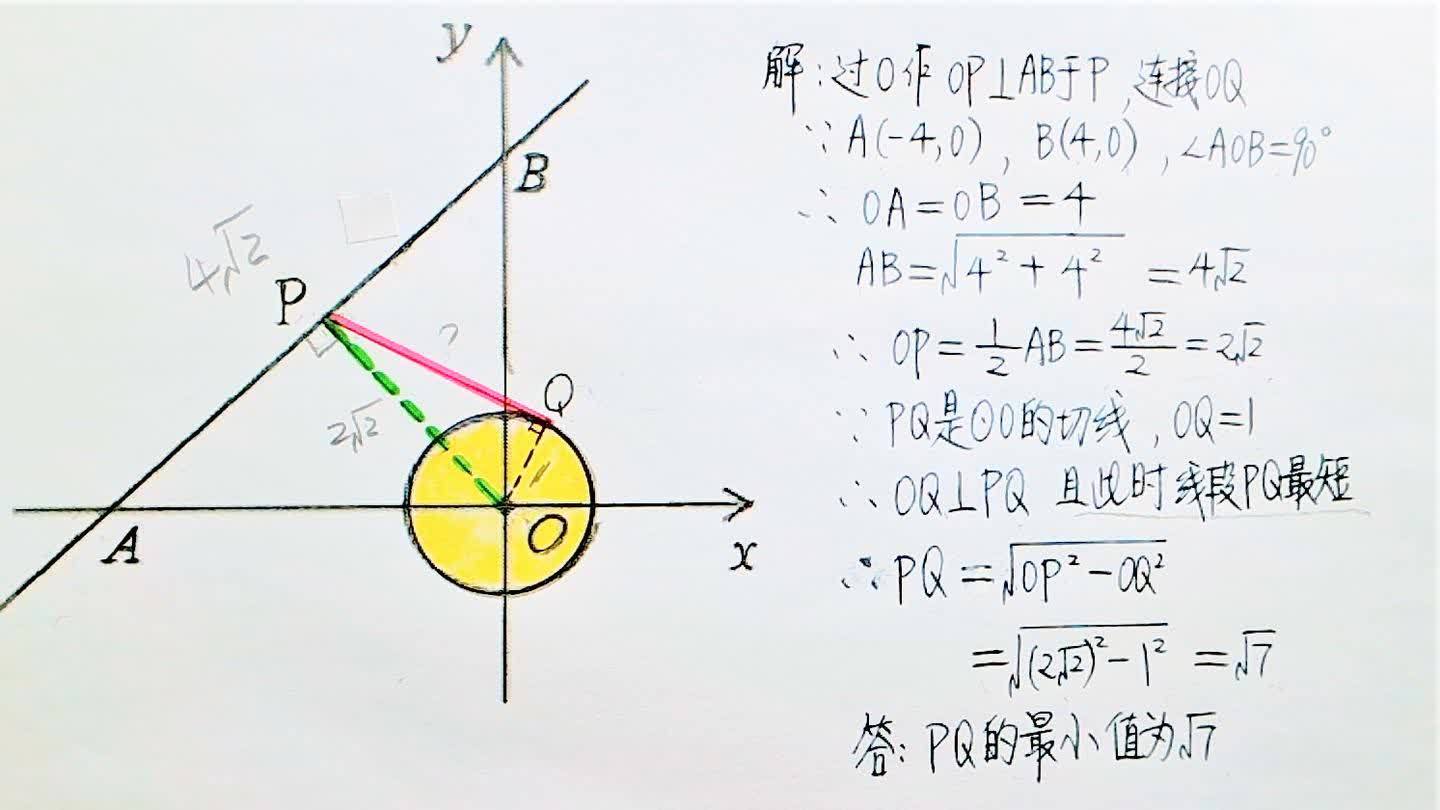 y
B
4√2
P
?
Q
2√2
O
A
x
解:过O作 OP⊥AB于P,连接OQ
∵A(-4,0), B(4,0), ∠AOB=90°
∴ OA=OB=4
AB=√(4²+4²) =4√2
∴ OP=1/2AB=4√2/2=2√2
∵ PQ是⊙O的切线, OQ=1
∴ OQ⊥PQ 且此时线段PQ最短
∴ PQ=√(OP²-OQ²)
=√((2√2)²-1²) =√7
答: PQ的最小值为√7